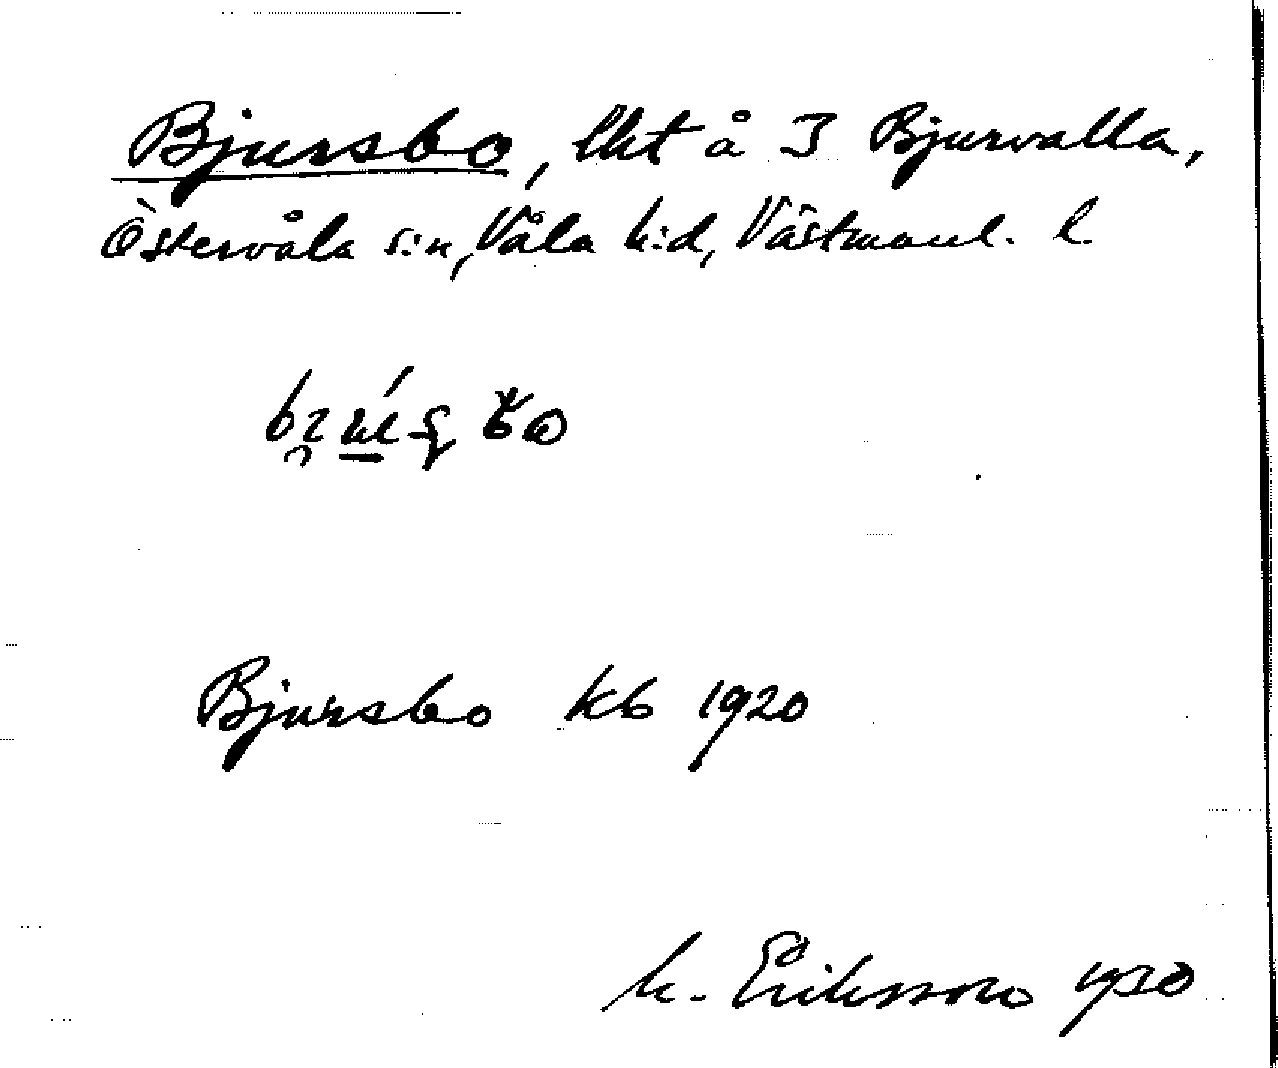 Bjursbo, lht å 3 Bjurvalla,
Östervåla s:n, Våla h:d, Västmanl. l.
Bjursbo kb 1920
M. Eriksson 1930